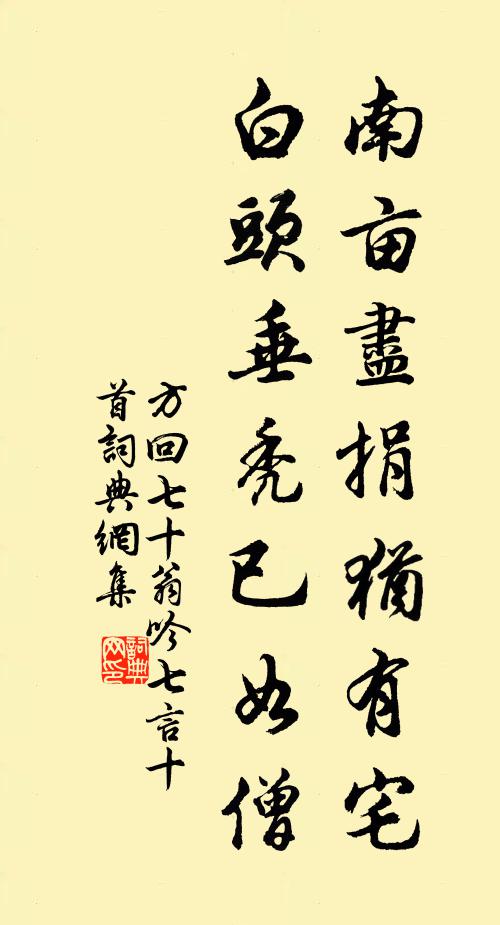 南亩盡捐猶有宅
白頭垂秃已如僧
方回七十翁吟七言十
首詞典網集
詞典网印